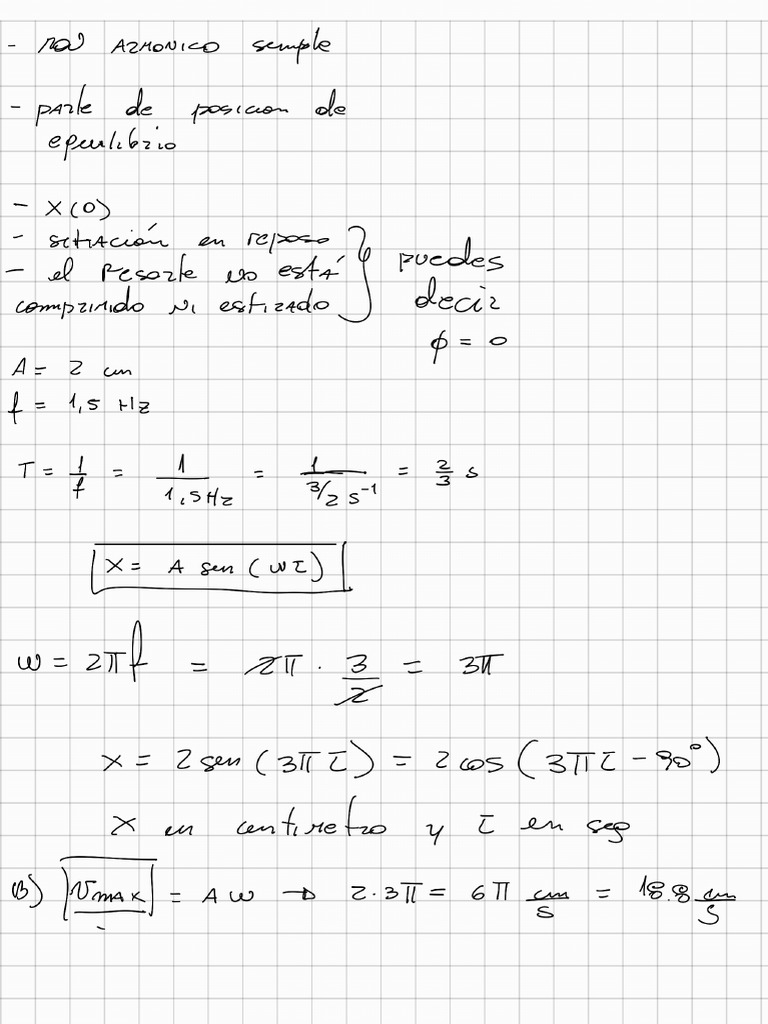 - mov ARMONICO semple
- parte de posicion de
equilibrio
- X(0)
- sitiación en reposo
- el resorte no está
comprimido ni estirado
puedes
decir
ϕ = 0
A = 2 cm
f = 1,5 Hz
T = 1/f = 1/1,5Hz = 1/(3/2 s⁻¹) = 2/3 s
X = A sen (ωt)
ω = 2πf = 2π · 3/2 = 3π
x = 2 sen (3π t) = 2 cos (3π t - 90°)
X en centimetro y t en seg
B) Vmax = A ω → 2·3π = 6π cm/s = 18.8 cm/s